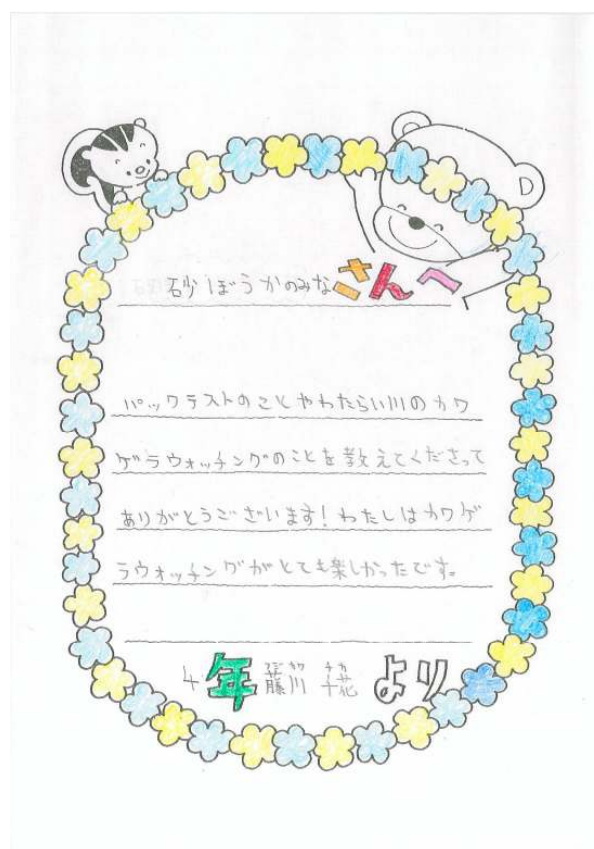 砂ぼうかのみなさんへ
パックテストのことやわたらい川のカワ
ゲラウォッチングのことを教えてくださって
ありがとうございます!わたしはカワゲ
ラウォッチングがとても楽しかったです。
フジカワ チカ
4年 藤川 千花 より
D